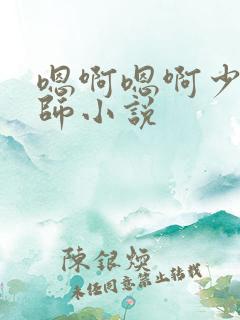 嗯啊嗯啊少
師小說
陳銀煐
未任同意禁止转载